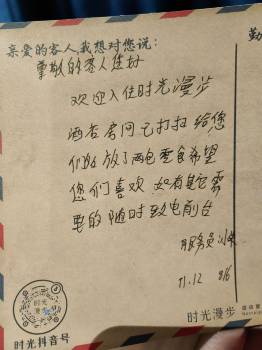 勤
亲爱的客人,我想对您说:
尊敬的客人您好
欢迎入住时光漫步
酒店房间已打扫 给您
们放了两包零食希望
您们喜欢 如有其它需
要的 随时致电前台
服务员
11.12
时光
漫步
时光抖音号
时光漫步